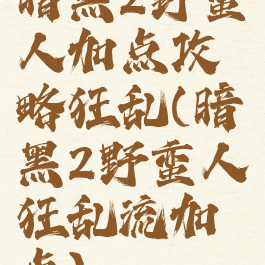 暗黑2野蛮
人加点攻
略狂乱(暗
黑2野蛮人
狂乱流加
点)